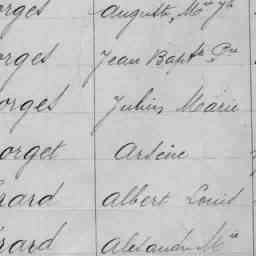 orges Auguste, Mie Jh
orges Jean Bapte Pre
orges Julien Marie
orget Arsène
rard Albert Louis
rard Alexandre Mie